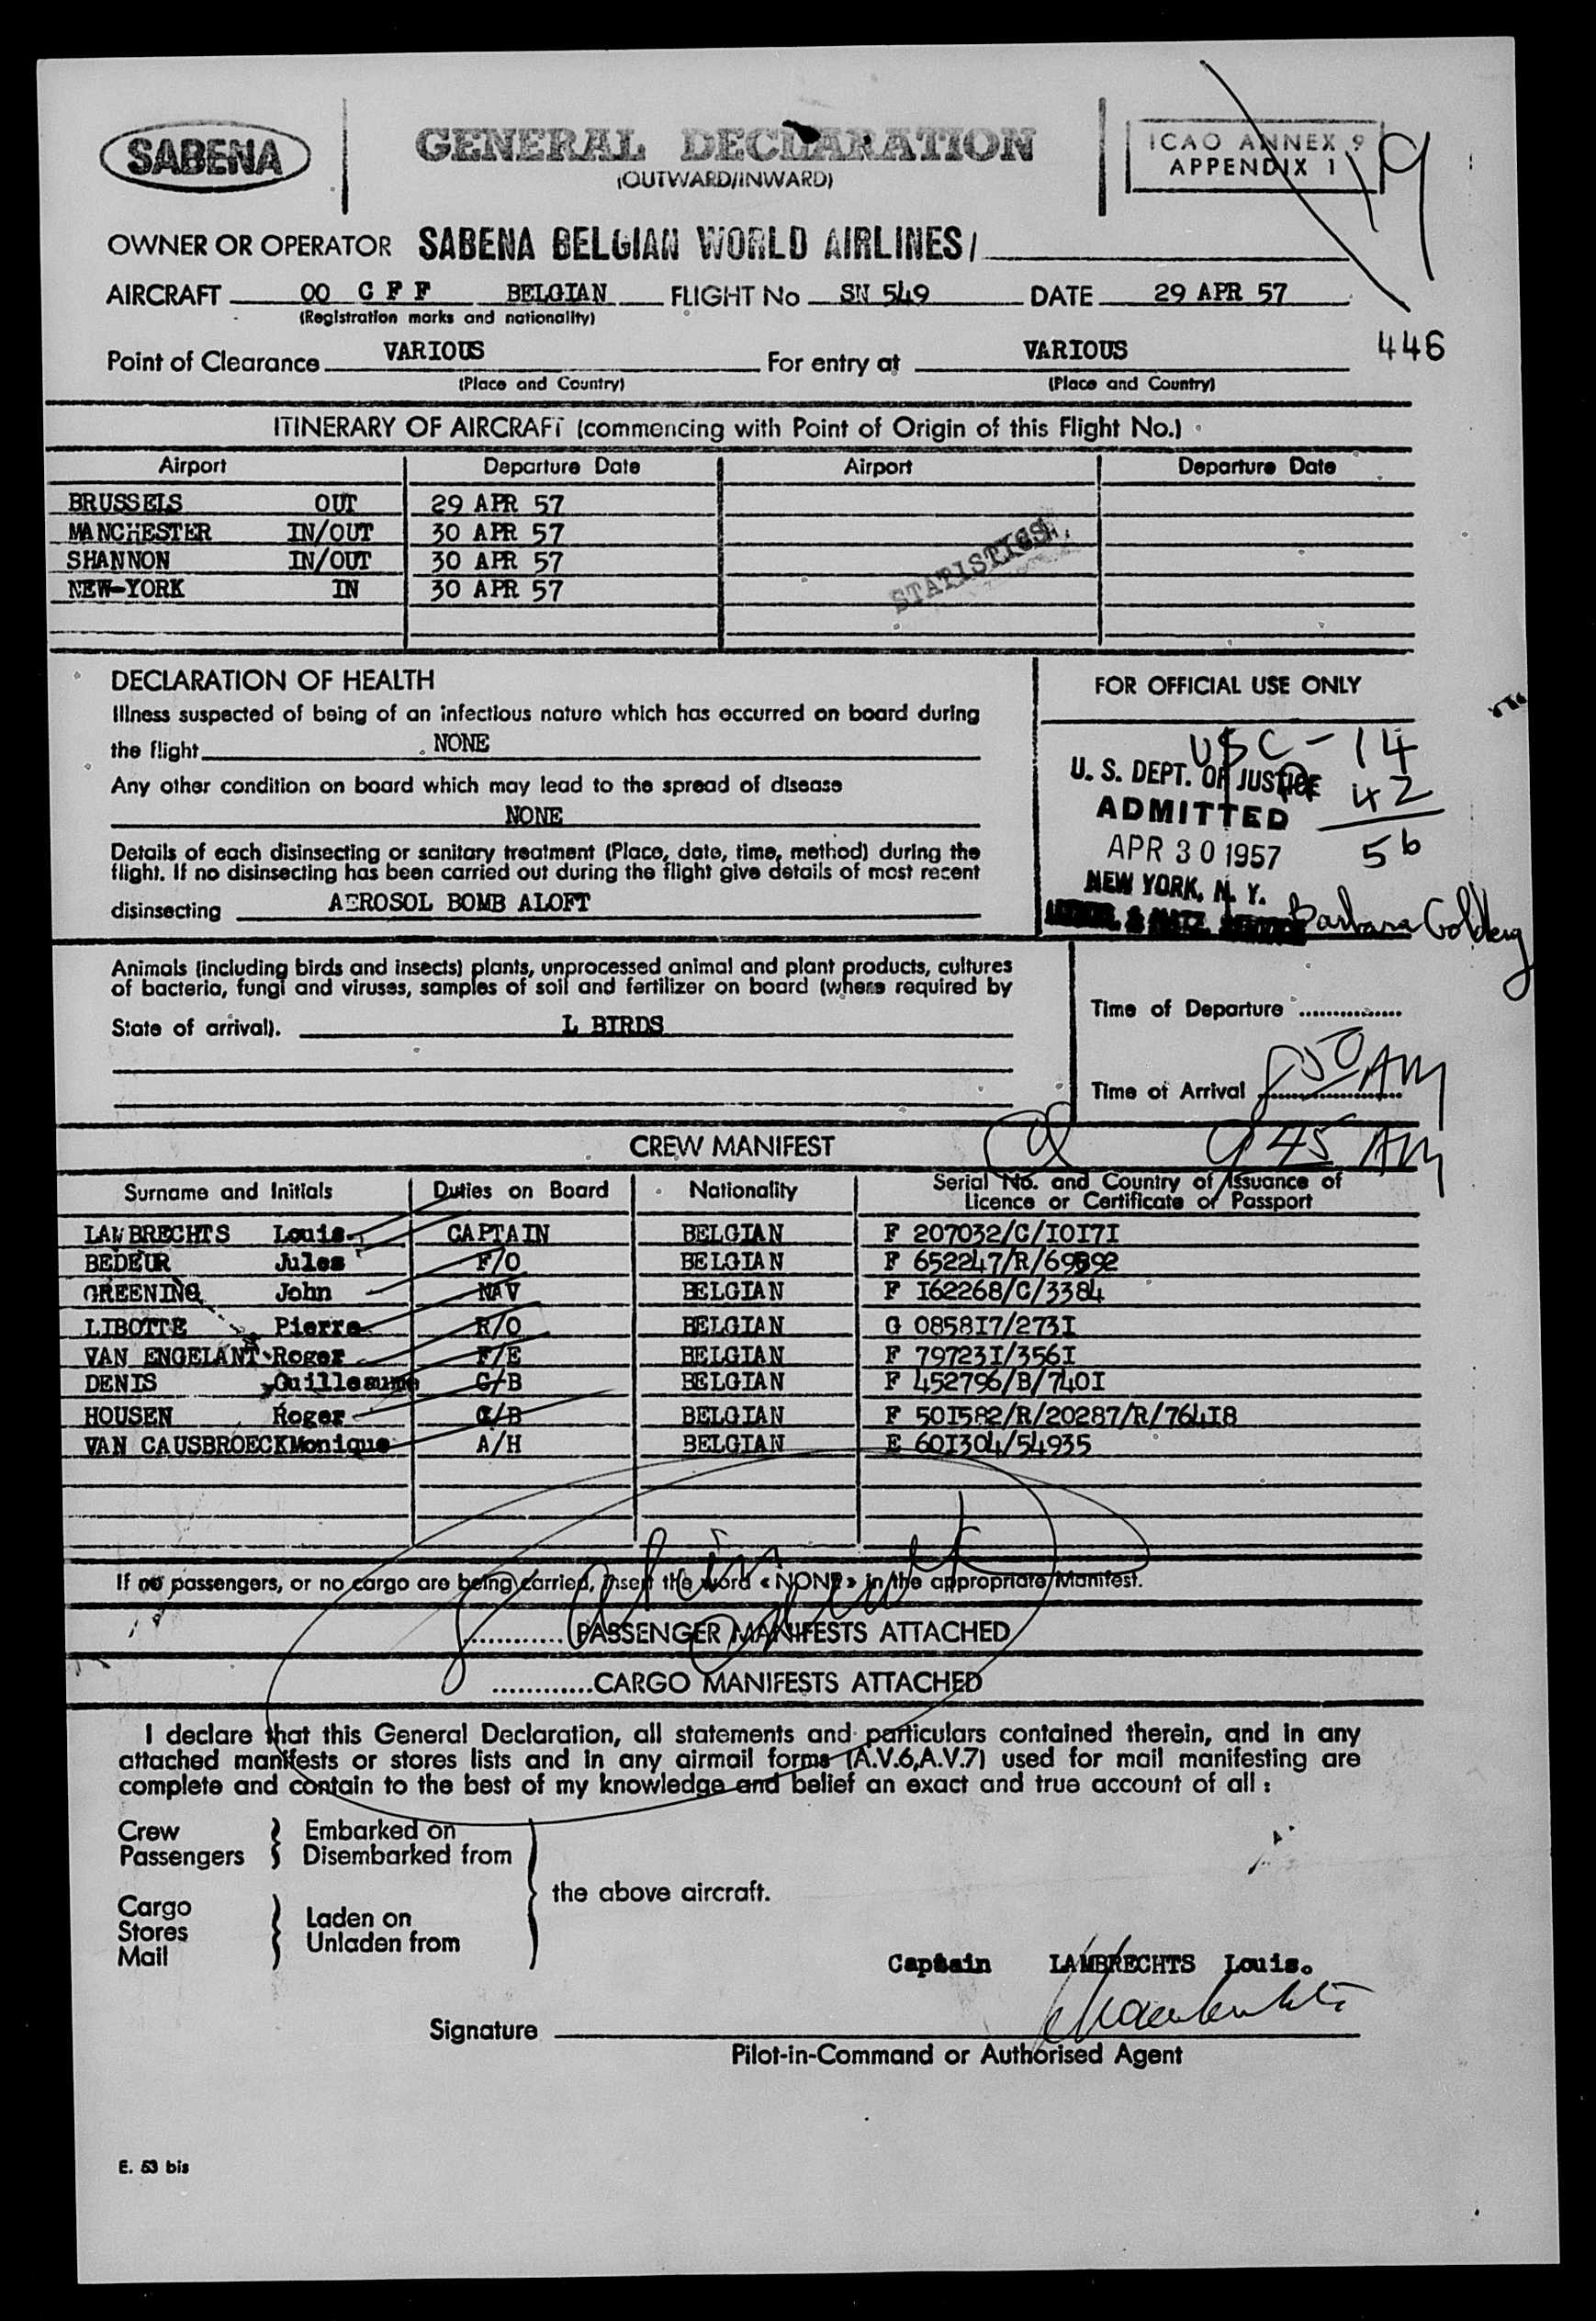 SABENA
GENERAL DECLARATION
(OUTWARD/INWARD)
ICAO ANNEX 9
APPENDIX 1
19
OWNER OR OPERATOR SABENA BELGIAN WORLD AIRLINES/
AIRCRAFT OO C F F BELGIAN FLIGHT No SN 549 DATE 29 APR 57
(Registration marks and nationality)
446
Point of Clearance VARIOUS For entry at VARIOUS
(Place and Country) (Place and Country)
ITINERARY OF AIRCRAFT (commencing with Point of Origin of this Flight No.)
Airport Departure Date Airport Departure Date
BRUSSELS OUT 29 APR 57
MANCHESTER IN/OUT 30 APR 57
SHANNON IN/OUT 30 APR 57
NEW-YORK IN 30 APR 57
STATISTICS
DECLARATION OF HEALTH
Illness suspected of being of an infectious nature which has occurred on board during
the flight NONE
Any other condition on board which may lead to the spread of disease
NONE
Details of each disinsecting or sanitary treatment (Place, date, time, method) during the
flight. If no disinsecting has been carried out during the flight give details of most recent
disinsecting AEROSOL BOMB ALOFT
FOR OFFICIAL USE ONLY
USC - 14
42
56
U. S. DEPT. OF JUSTICE
ADMITTED
APR 30 1957
NEW YORK, N. Y.
Barbara Goldberg
Animals (including birds and insects) plants, unprocessed animal and plant products, cultures
of bacteria, fungi and viruses, samples of soil and fertilizer on board (where required by
State of arrival). L BIRDS
Time of Departure ................
Time of Arrival 850 AM
945 AM
CREW MANIFEST
Surname and Initials Duties on Board Nationality Serial No. and Country of Issuance of
Licence or Certificate or Passport
LAMBRECHTS Louis CAPTAIN BELGIAN F 207032/C/I0I7I
BEDEUR Jules F/O BELGIAN F 652247/R/69592
GREENING John NAV BELGIAN F I62268/C/3384
LIBOTTE Pierre R/O BELGIAN G 0858I7/273I
VAN ENGELANT Roger F/E BELGIAN F 79723I/356I
DENIS Guilleaume C/B BELGIAN F 452796/B/740I
HOUSEN Roger C/B BELGIAN F 50I582/R/20287/R/764I8
VAN CAUSBROECK Monique A/H BELGIAN E 60I304/54935
If no passengers, or no cargo are being carried, insert the word « NONE » in the appropriate Manifest.
............ PASSENGER MANIFESTS ATTACHED
............CARGO MANIFESTS ATTACHED
I declare that this General Declaration, all statements and particulars contained therein, and in any
attached manifests or stores lists and in any airmail forms (A.V.6,A.V.7) used for mail manifesting are
complete and contain to the best of my knowledge and belief an exact and true account of all :
Crew Embarked on
Passengers Disembarked from
the above aircraft.
Cargo
Stores Laden on
Mail Unladen from
Captain LAMBRECHTS Louis.
Signature
Pilot-in-Command or Authorised Agent
E. 53 bis